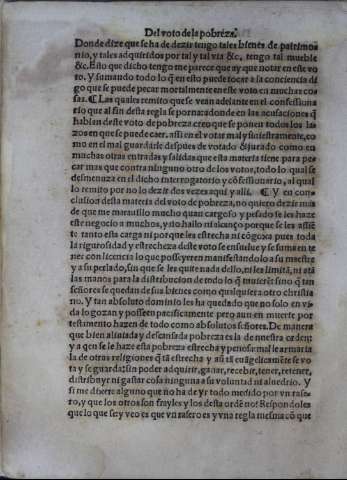 Del voto dela pobreza.
Donde dize que se ha de dezir tengo tales bienes de patrimo
nio, y tales adquiridos por tal y tal via &c, tengo tal mueble
&c. Esto que dicho tengo me parece que ay que notar en este vo
to. Y sumando todo lo q̃ en esto puede tocar a la conciencia di
go que se puede pecar mortalmente en este voto en muchas co
sas. ¶ Las quales remito que se vean adelante en el confessiona
rio que al fin desta regla se porna: adonde en las acusaciones q̃
hablan deste voto de pobreza creo que se ponen todos los la-
zos en que se puede caer, assi en el votar mal y siniestramente, co
mo en el mal guardarle despues de votado & jurado como en
muchas otras entradas y salidas que esta materia tiene para pe-
car mas que contra ninguno otro de los votos, todo lo qual se
desmenuza en el dicho interrogatorio y cõfessionario, al qual
lo remito por no lo dezir dos vezes aqui y alli. ¶ Y en con-
clusion desta materia del voto de pobreza, no quiero dezir mas
de que me marauillo mucho quan cargoso y pesado se les haze
este negocio a muchos, y no hallo ni alcanço porque se les assiē
te tanto esta carga ni porque les estrecha ni cõgoxa pues toda
la rigurosidad y estrecheza deste voto se ensuelue y se suma en te
ner con licencia lo que posseyeren manifestandolo a su maestre
y a su perlado, sin que se les quite nada dello, ni les limitã, ni atã
las manos para la distribucion de todo lo q̃ tuuierẽ sino q̃ tan
señores se quedan de sus bienes como qualquiera otro christia
no. Y tan absoluto dominio les ha quedado que no solo en vi-
da lo gozan y posseen pacificamente pero aun en muerte por
testamento hazen de todo como absolutos señores. De manera
que bien aliuiada y descansada pobreza es la de nuestra orden:
y a qẽ se le haze esta pobreza estrecha y penosa: mal le armaria
la de otras religiones q̃ tã estrecha y aũ tã euãgelicamẽte se vo
ta y se guarda; sin poder adquirir, ganar, recebir, tener, retener,
distribuyr ni gastar cosa ninguna a su voluntad ni aluedrio. Y
si me dixere alguno que no ha de yr todo medido por vn rase-
ro, y que los otros son frayles y los desta ordẽ no! Respondoles
que lo que se y veo es que vn rasero es y vna regla mesma cõ que